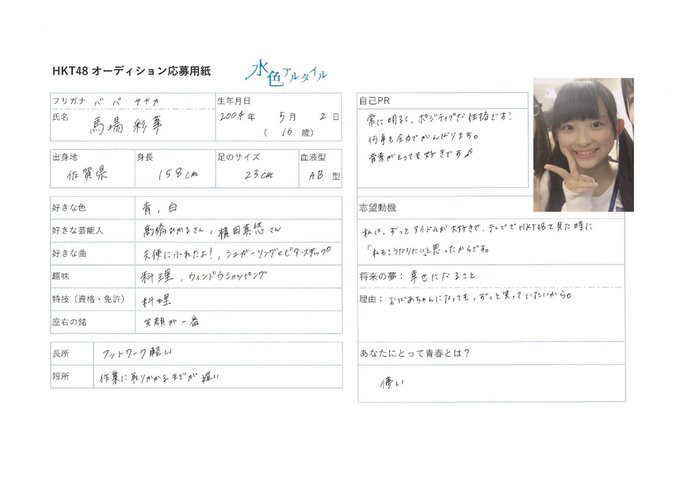 HKT48 オーディション応募用紙
水色アルタイル
フリガナ ババ サヤカ
氏名 馬場 彩華
生年月日
2004年 5月 2日
(16歳)
出身地 佐賀県
身長 158cm
足のサイズ 23cm
血液型 AB型
好きな色 青、白
好きな芸能人 さん、さん
好きな曲 天使にふれたよ!、シュガーソングとビターステップ
趣味 料理、ウィンドウショッピング
特技(資格・免許) 料理
座右の銘 笑顔が一番
長所 フットワーク軽い
短所 作業に取りかかるまでが遅い
自己PR
常に明るく、ポジティブな性格です!
何事も全力でがんばります。
音楽がとっても好きです♪
志望動機
私は、ずっとアイドルが大好きで、テレビでHKT48を見た時に
「私もこうなりたい」と思ったからです。
将来の夢:幸せになること
理由:おばあちゃんになっても、ずっと笑っていたいから。
あなたにとって青春とは?
儚い